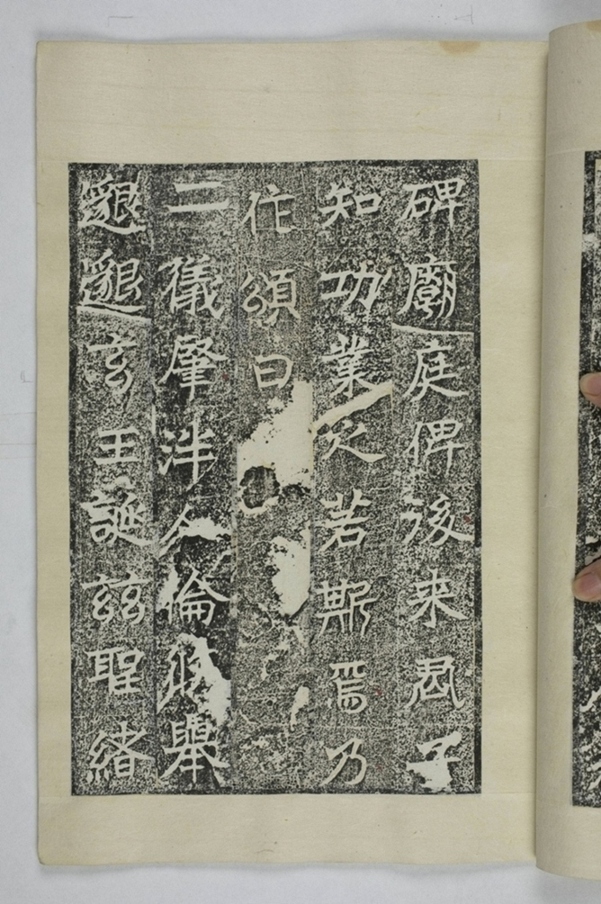 碑廟庭俾後来君子
知功業之若斯焉乃
作頌曰
二儀肇泮人倫攸舉
邈邈玄王誕茲聖緒